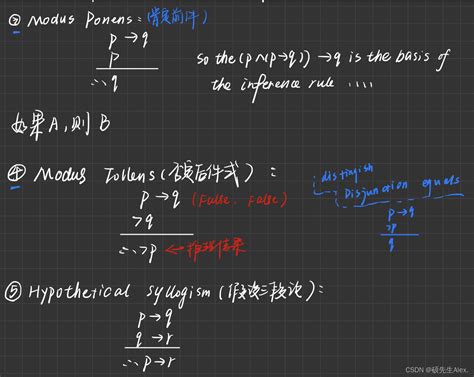 ③ Modus Ponens: (肯定前件)
p → q
p
∴ q
so the (p ∧ (p→q)) → q is the basis of
the inference rule ....
如果A, 则 B
④ Modus Tollens (否定后件式) :
p → q (False, False)
¬q
∴ ¬p ← 推理结果
distingish
Disjunction equals
p → q
¬p
q
⑤ Hypothetical Syllogism (假设三段论):
p → q
q → r
∴ p → r
CSDN @硕先生Alex.